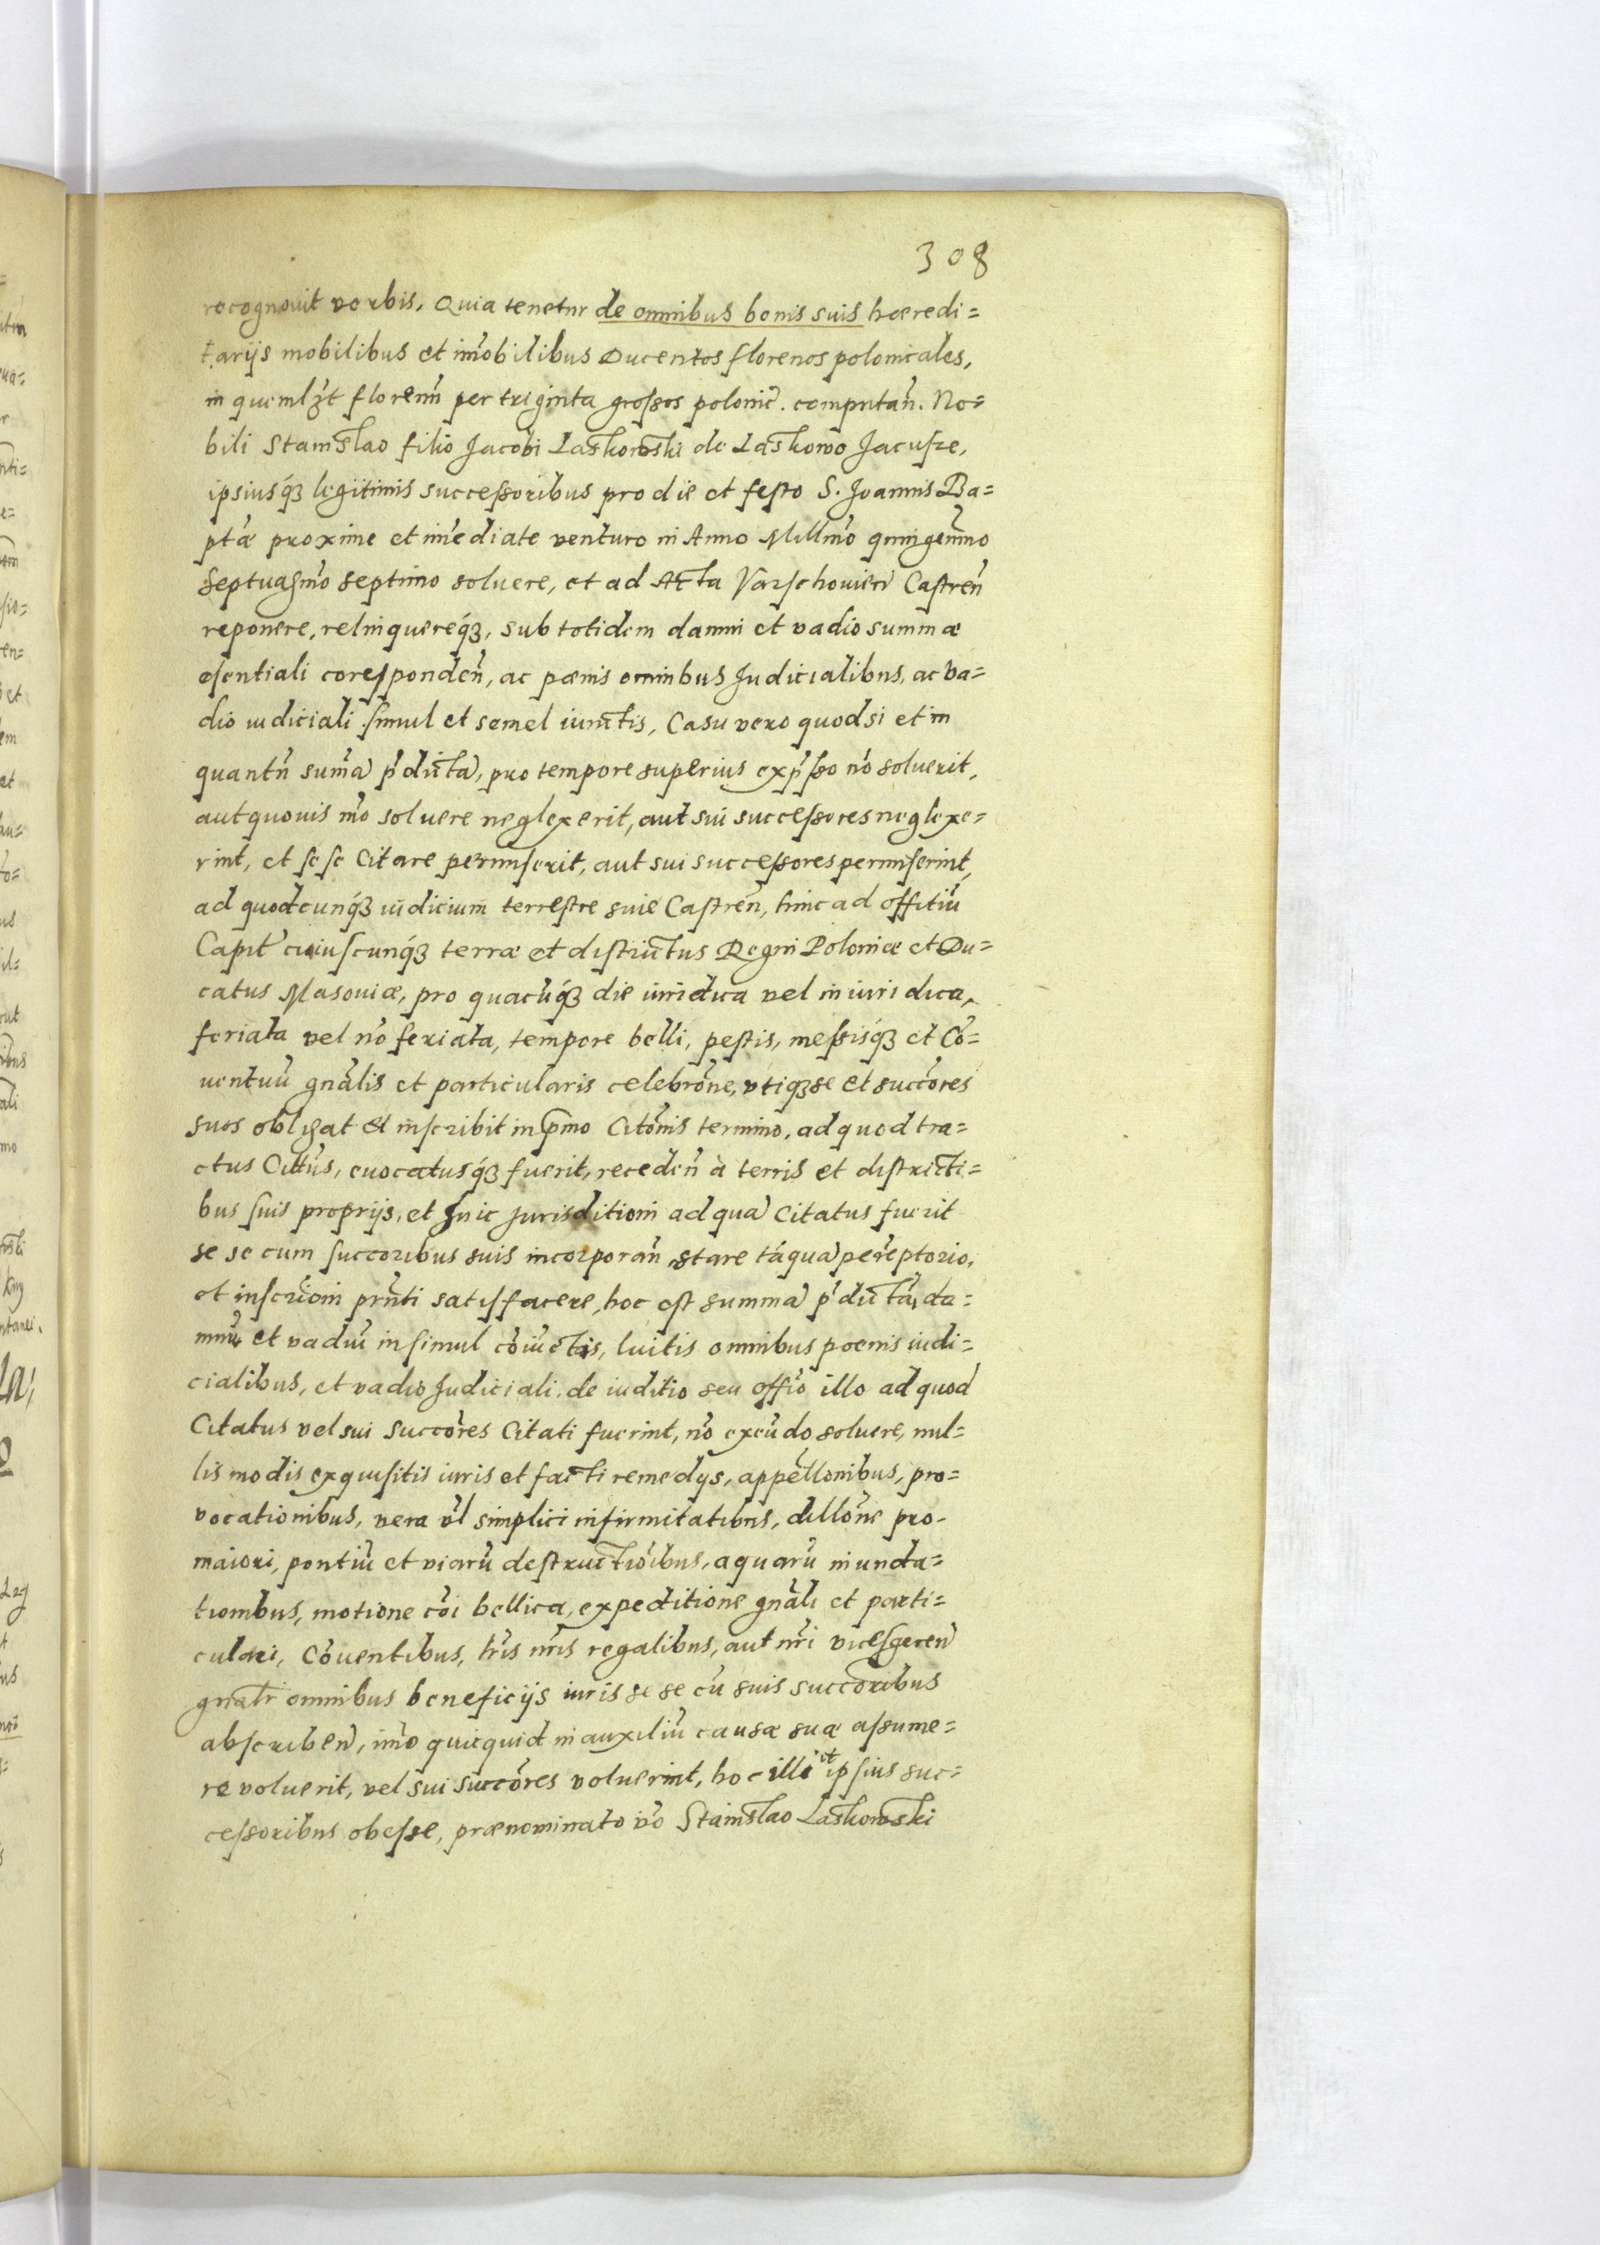 308
recognouit verbis, Quia tenetur de omnibus bonis suis hæredi=
tarijs mobilibus et im̃obilibus Ducentos florenos polonicales,
in quemlꝫt floren̄ per triginta grossos polonic̃. computan̄. No=
bili Stanislao filio Jacobi Laskowski de Laskowo Jacusze,
ipsiusq́ꝫ legitimis successoribus pro die et festo S. Joannis Ba=
ptæ proxime et im̃ediate venturo in Anno Millm̃o quingen̄mo
Septuagm̃o septimo soluere, et ad Acta Varschouien̄ Castren̄
reponere, relinquereq́ꝫ, sub totidem damni et vadio summæ
esentiali coresponden̄, ac pœnis omnibus Judicialibus, ac va=
dio iudiciali simul et semel iunctis, Casu vero quod si et in
quantũ sum̃ã p̃dictã, pro tempore superius exp̃sso nõ soluerit,
aut quouis m̃o soluere neglexerit, aut sui successores neglexe=
rint, et se se Citare permiserit, aut sui successores permiserint,
ad quodcunq́ꝫ iudicium terrestre siue Castren̄, hinc ad offitiũ
Capit̃ cuiuscunq́ꝫ terræ et districtus Regni Poloniæ et Du=
catus Masouiæ, pro quacũq́ꝫ die iuridica vel in iuridica,
feriata vel nõ feriata, tempore belli, pestis, messisq́ꝫ et Cõ=
uentuũ gñalis et particularis celebrõne, vtiqꝫ se et succõres
suos obligat et inscribit in p̃mo Citõnis termino, ad quod tra=
ctus Citt̃us, euocatusq́ꝫ fuerit, receden̄ à terris et districti=
bus suis proprijs, et huic Jurisditioni ad quã Citatus fuerit
se se cum succoribus suis incorporan̄, stare tãquã perẽptorio,
et inscrĩoni prñti satisfacere, hoc est summã p̃dictã, da=
mnũ et vadiũ insimul cõiũctis, luitis omnibus poenis iudi=
cialibus, et vadio Judiciali, de iuditio seu offĩo illo ad quod
Citatus vel sui Succõres Citati fuerint, nõ exeũdo soluere, nul=
lis modis exquisitis iuris et facti remedys, appellõnibus, pro=
vocationibus, vera vl̃ simplici infirmitatibus, dillõne pro
maiori, pontiũ et viarũ destructiõibus, aquarũ inunda=
tionibus, motione cõi bellica, expeditione gñali et parti=
culari, Cõuentibus, lr̃is nr̃is regalibus, aut nr̃i vicesgeren̄
gñali omnibus beneficijs iuris se se cũ suis succõribus
abscriben̄, im̃o quicquid in auxiliũ causæ suæ assume=
re voluerit, vel sui succõres voluerint, hoc illi et ipsius suc=
cessoribus obesse, prænominato võ Stanislao Laskowski